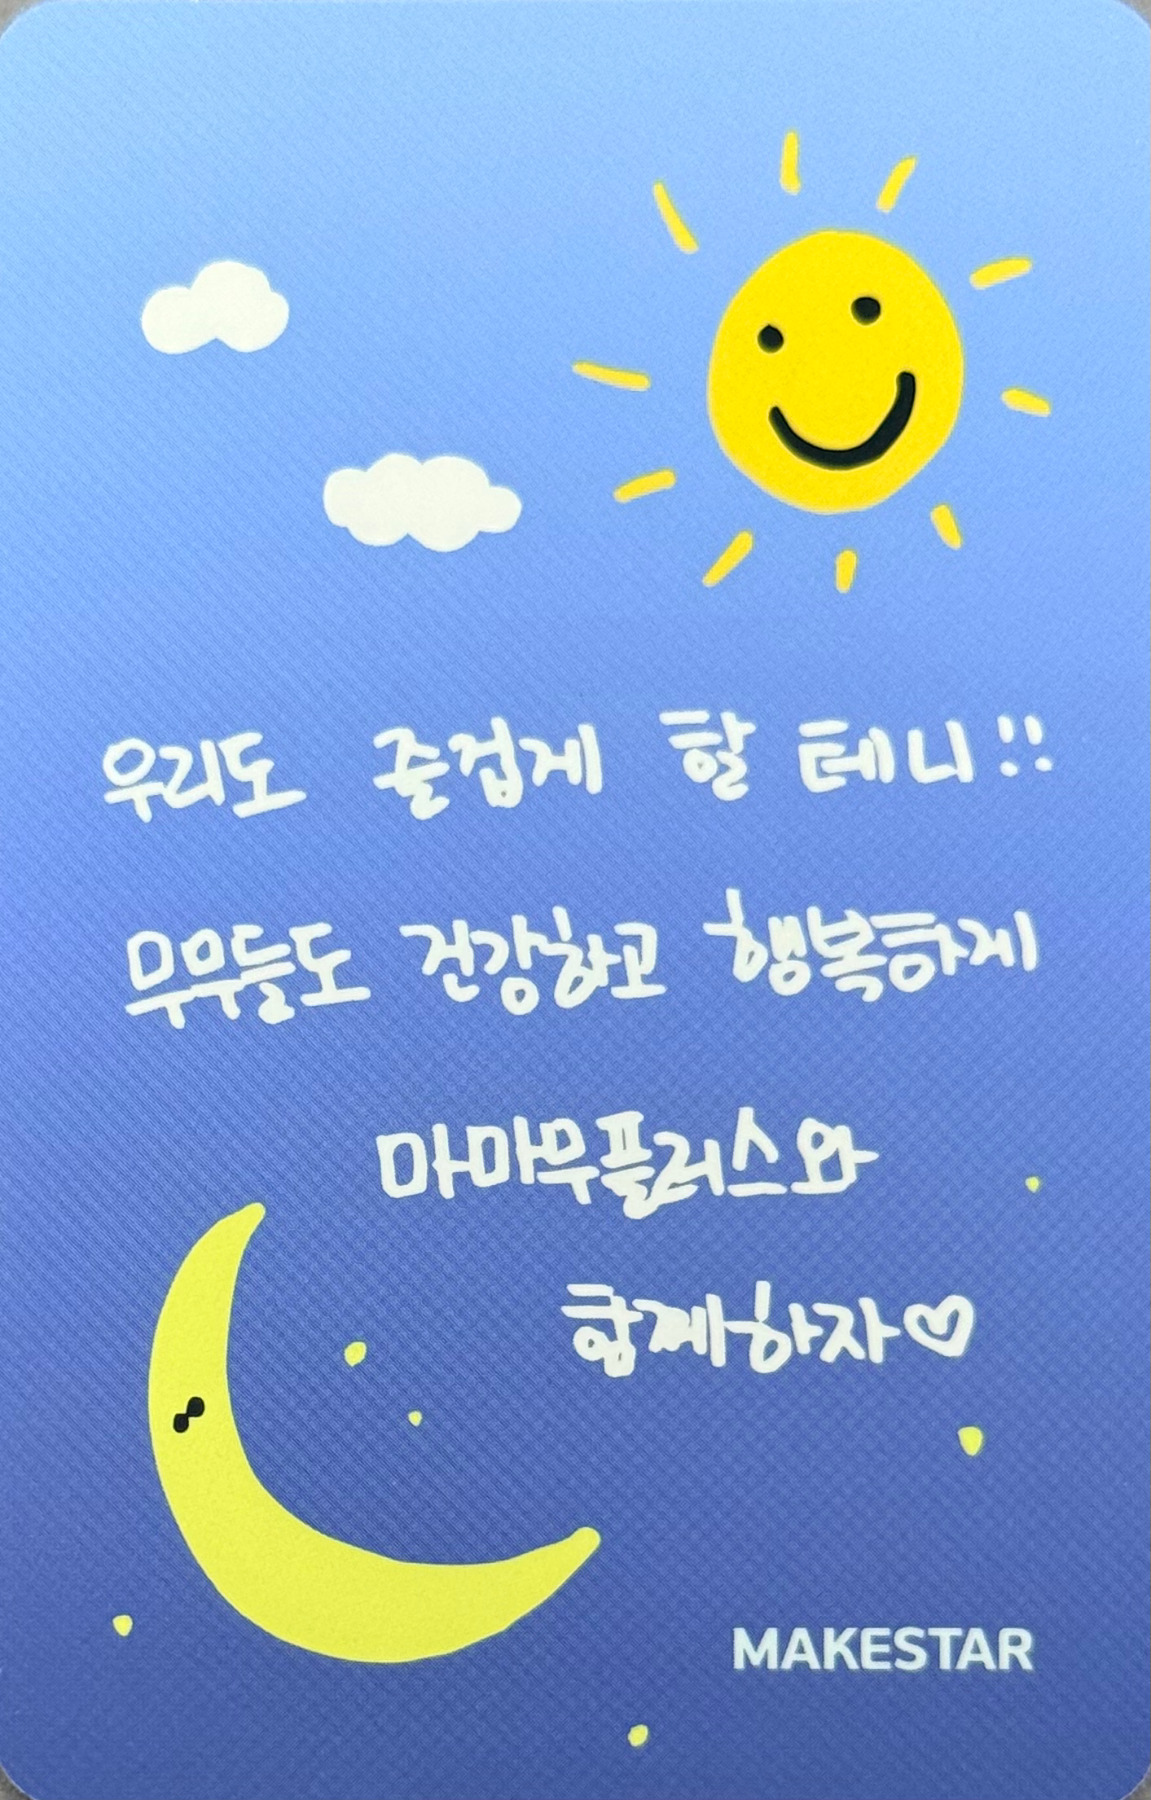 우리도 즐겁게 할 테니!!
무무들도 건강하고 행복하게
마마무플러스와
함께하자♡
MAKESTAR